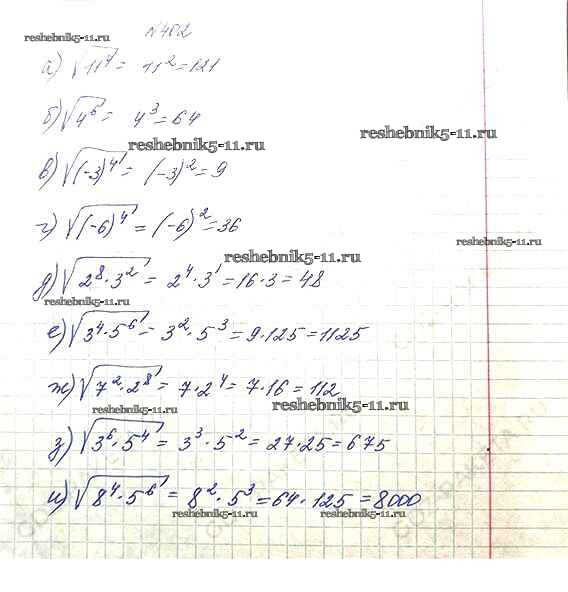 №402
reshebnik5-11.ru
reshebnik5-11.ru
а) √11⁴ = 11² = 121
б) √4⁶ = 4³ = 64
reshebnik5-11.ru
reshebnik5-11.ru
в) √(-3)⁴ = (-3)² = 9
г) √(-6)⁴ = (-6)² = 36
reshebnik5-11.ru
reshebnik5-11.ru
д) √2⁸·3² = 2⁴·3¹ = 16·3 = 48
reshebnik5-11.ru
е) √3⁴·5⁶ = 3²·5³ = 9·125 = 1125
ж) √7²·2⁸ = 7·2⁴ = 7·16 = 112
reshebnik5-11.ru
reshebnik5-11.ru
з) √3⁶·5⁴ = 3³·5² = 27·25 = 675
и) √8⁴·5⁶ = 8²·5³ = 64·125 = 8000
reshebnik5-11.ru
reshebnik5-11.ru